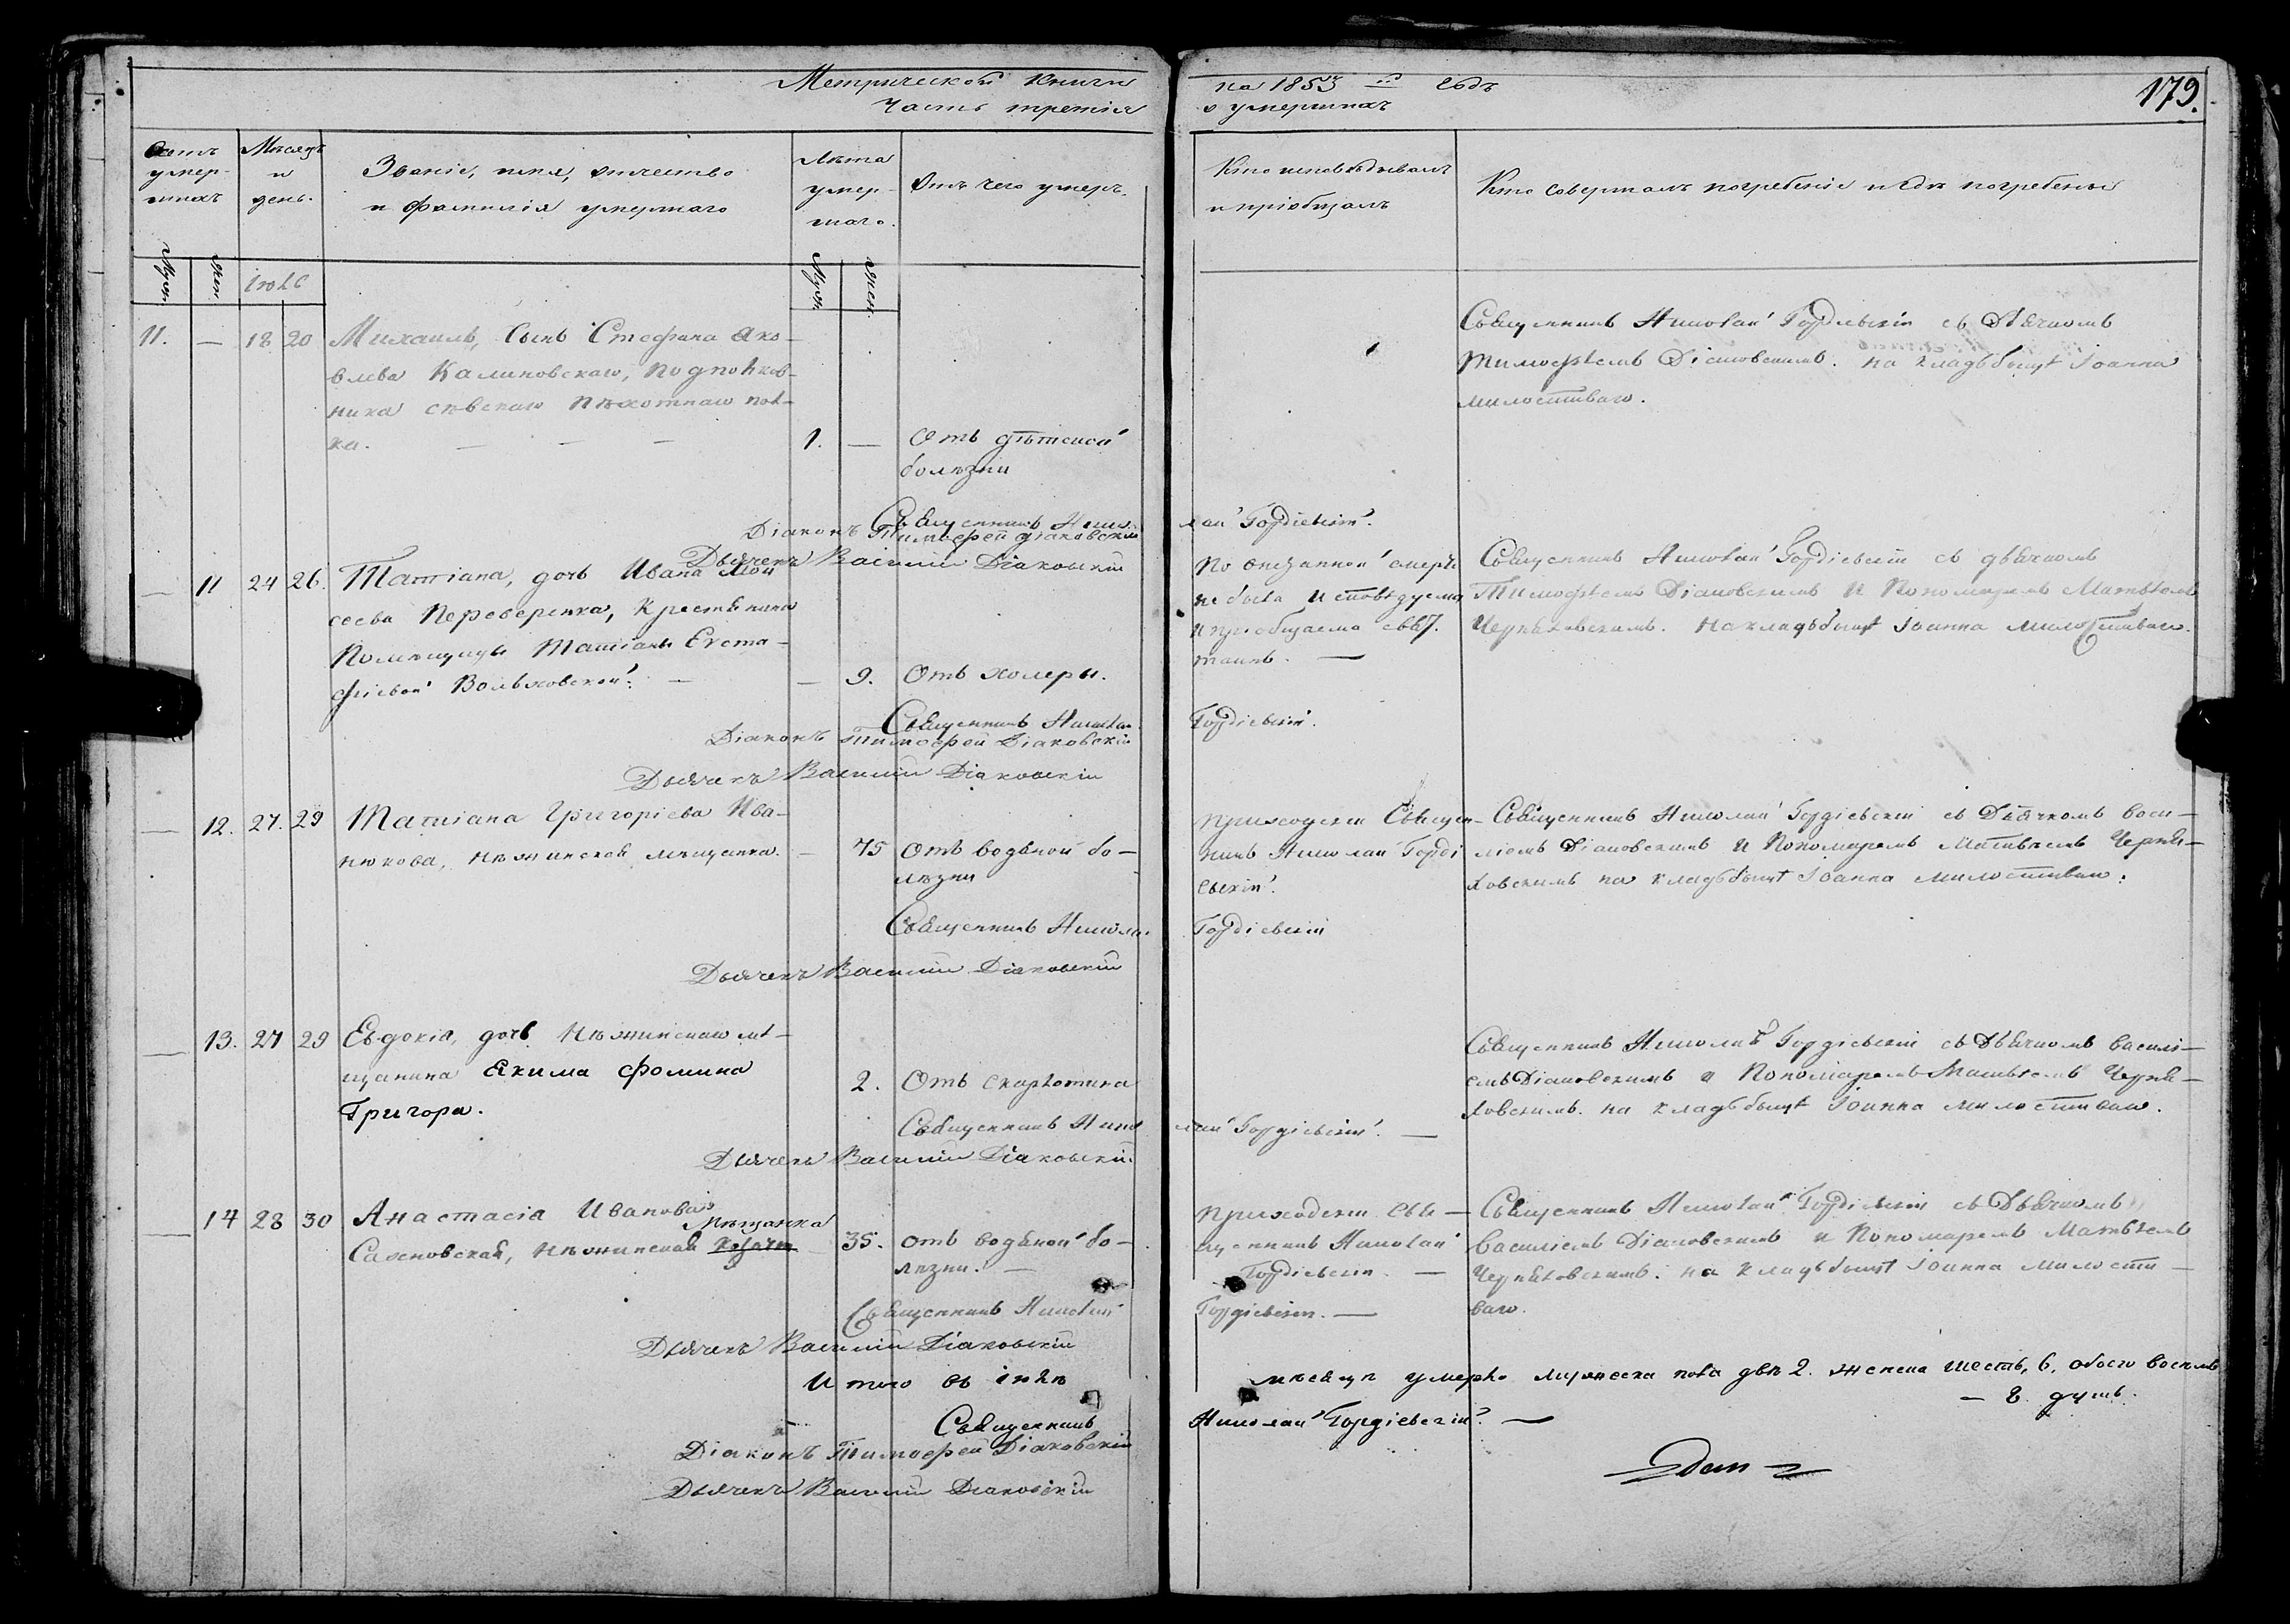 Метрической книги на 1853й годъ
179.
Часть третія о умершихъ
Счетъ умер-шихъ
Муж.
Жен.
Мѣсяцъ и день.
Іюль
Званіе, имя, отчество
и фамилія умершаго
Лѣта умер-шаго.
Муж.
Жен.
Отъ чего умеръ.
Кто исповѣдывалъ
и пріобщалъ
Кто совершалъ погребеніе и гдѣ погребены
11. — 18 20 Михаилъ, сынъ Стефана Яко-
влева Калиновскаго, подполков-
ника Сѣвскаго пѣхотнаго пол-
ка. — — —
1. — Отъ дѣтской
болѣзни
Священникъ Николай Гордіевскій съ дьячкомъ
Тимофѣемъ Діаковскимъ. на кладбищѣ Іоанна
милостиваго.
Священникъ Николай Гордіевскій.
Діаконъ Тимофей Діаковскій
Дьячекъ Василій Діаковскій
— 11 24 26. Татіана, дочь Ивана Мои
сеева Переверзика, крестьянина
помѣщицы Татіаны Евста-
фіевой Вольховской. —
— 9. Отъ холеры.
По внезапной смерти
не была исповѣдуема
и пріобщаема свят.
таинъ. —
Священникъ Николай Гордіевскій съ дьячкомъ
Тимофѣемъ Діаковскимъ и Пономаремъ Матвѣемъ
Черняховскимъ. на кладбищѣ Іоанна милостиваго.
Священникъ Николай Гордіевскій.
Діаконъ Тимофей Діаковскій
Дьячекъ Василій Діаковскій
— 12. 27. 29 Татіана Григоріева Ива-
нюкова, нѣжинская мѣщанка.
— 75 Отъ водяной бо-
лѣзни
Приходскій Священ-
никъ Николай Горді
евскій.
Священникъ Николай Гордіевскій съ Дьячкомъ Васи-
ліемъ Діаковскимъ и Пономаремъ Матвѣемъ Черня-
ховскимъ на кладбищѣ Іоанна милостиваго.
Священникъ Николай Гордіевскій
Дьячекъ Василій Діаковскій
— 13. 27 29 Евдокія, дочь Нѣжинскаго мѣ-
щанина Якима Фомина
Григора.
2. Отъ скарлотина
Священникъ Николай Гордіевскій съ Дьячкомъ Василі-
емъ Діаковскимъ и Пономаремъ Матвѣемъ Черня-
ховскимъ. на кладбищѣ Іоанна милостиваго.
Священникъ Николай Гордіевскій. —
Дьячекъ Василій Діаковскій.
— 14 28 30 Анастасія Иванова
мѣщанка
Сахновская, нѣжинская
35. отъ водяной бо-
лѣзни. —
Приходскій Свя-
щенникъ Николай
Гордіевскій. —
Священникъ Николай Гордіевскій съ Дьячкомъ
Василіемъ Діаковскимъ и Пономаремъ Матвѣемъ
Черняховскимъ. на кладбищѣ Іоанна милости-
ваго.
Священникъ Николай Гордіевскій. —
Дьячекъ Василій Діаковскій
Итого въ іюлѣ мѣсяцѣ умерло мужеска пола двѣ 2. женска шесть, 6, обоего восемь
— 8 душъ.
Священникъ Николай Гордіевскій. —
Діаконъ Тимофей Діаковскій
Дьячекъ Василій Діаковскій